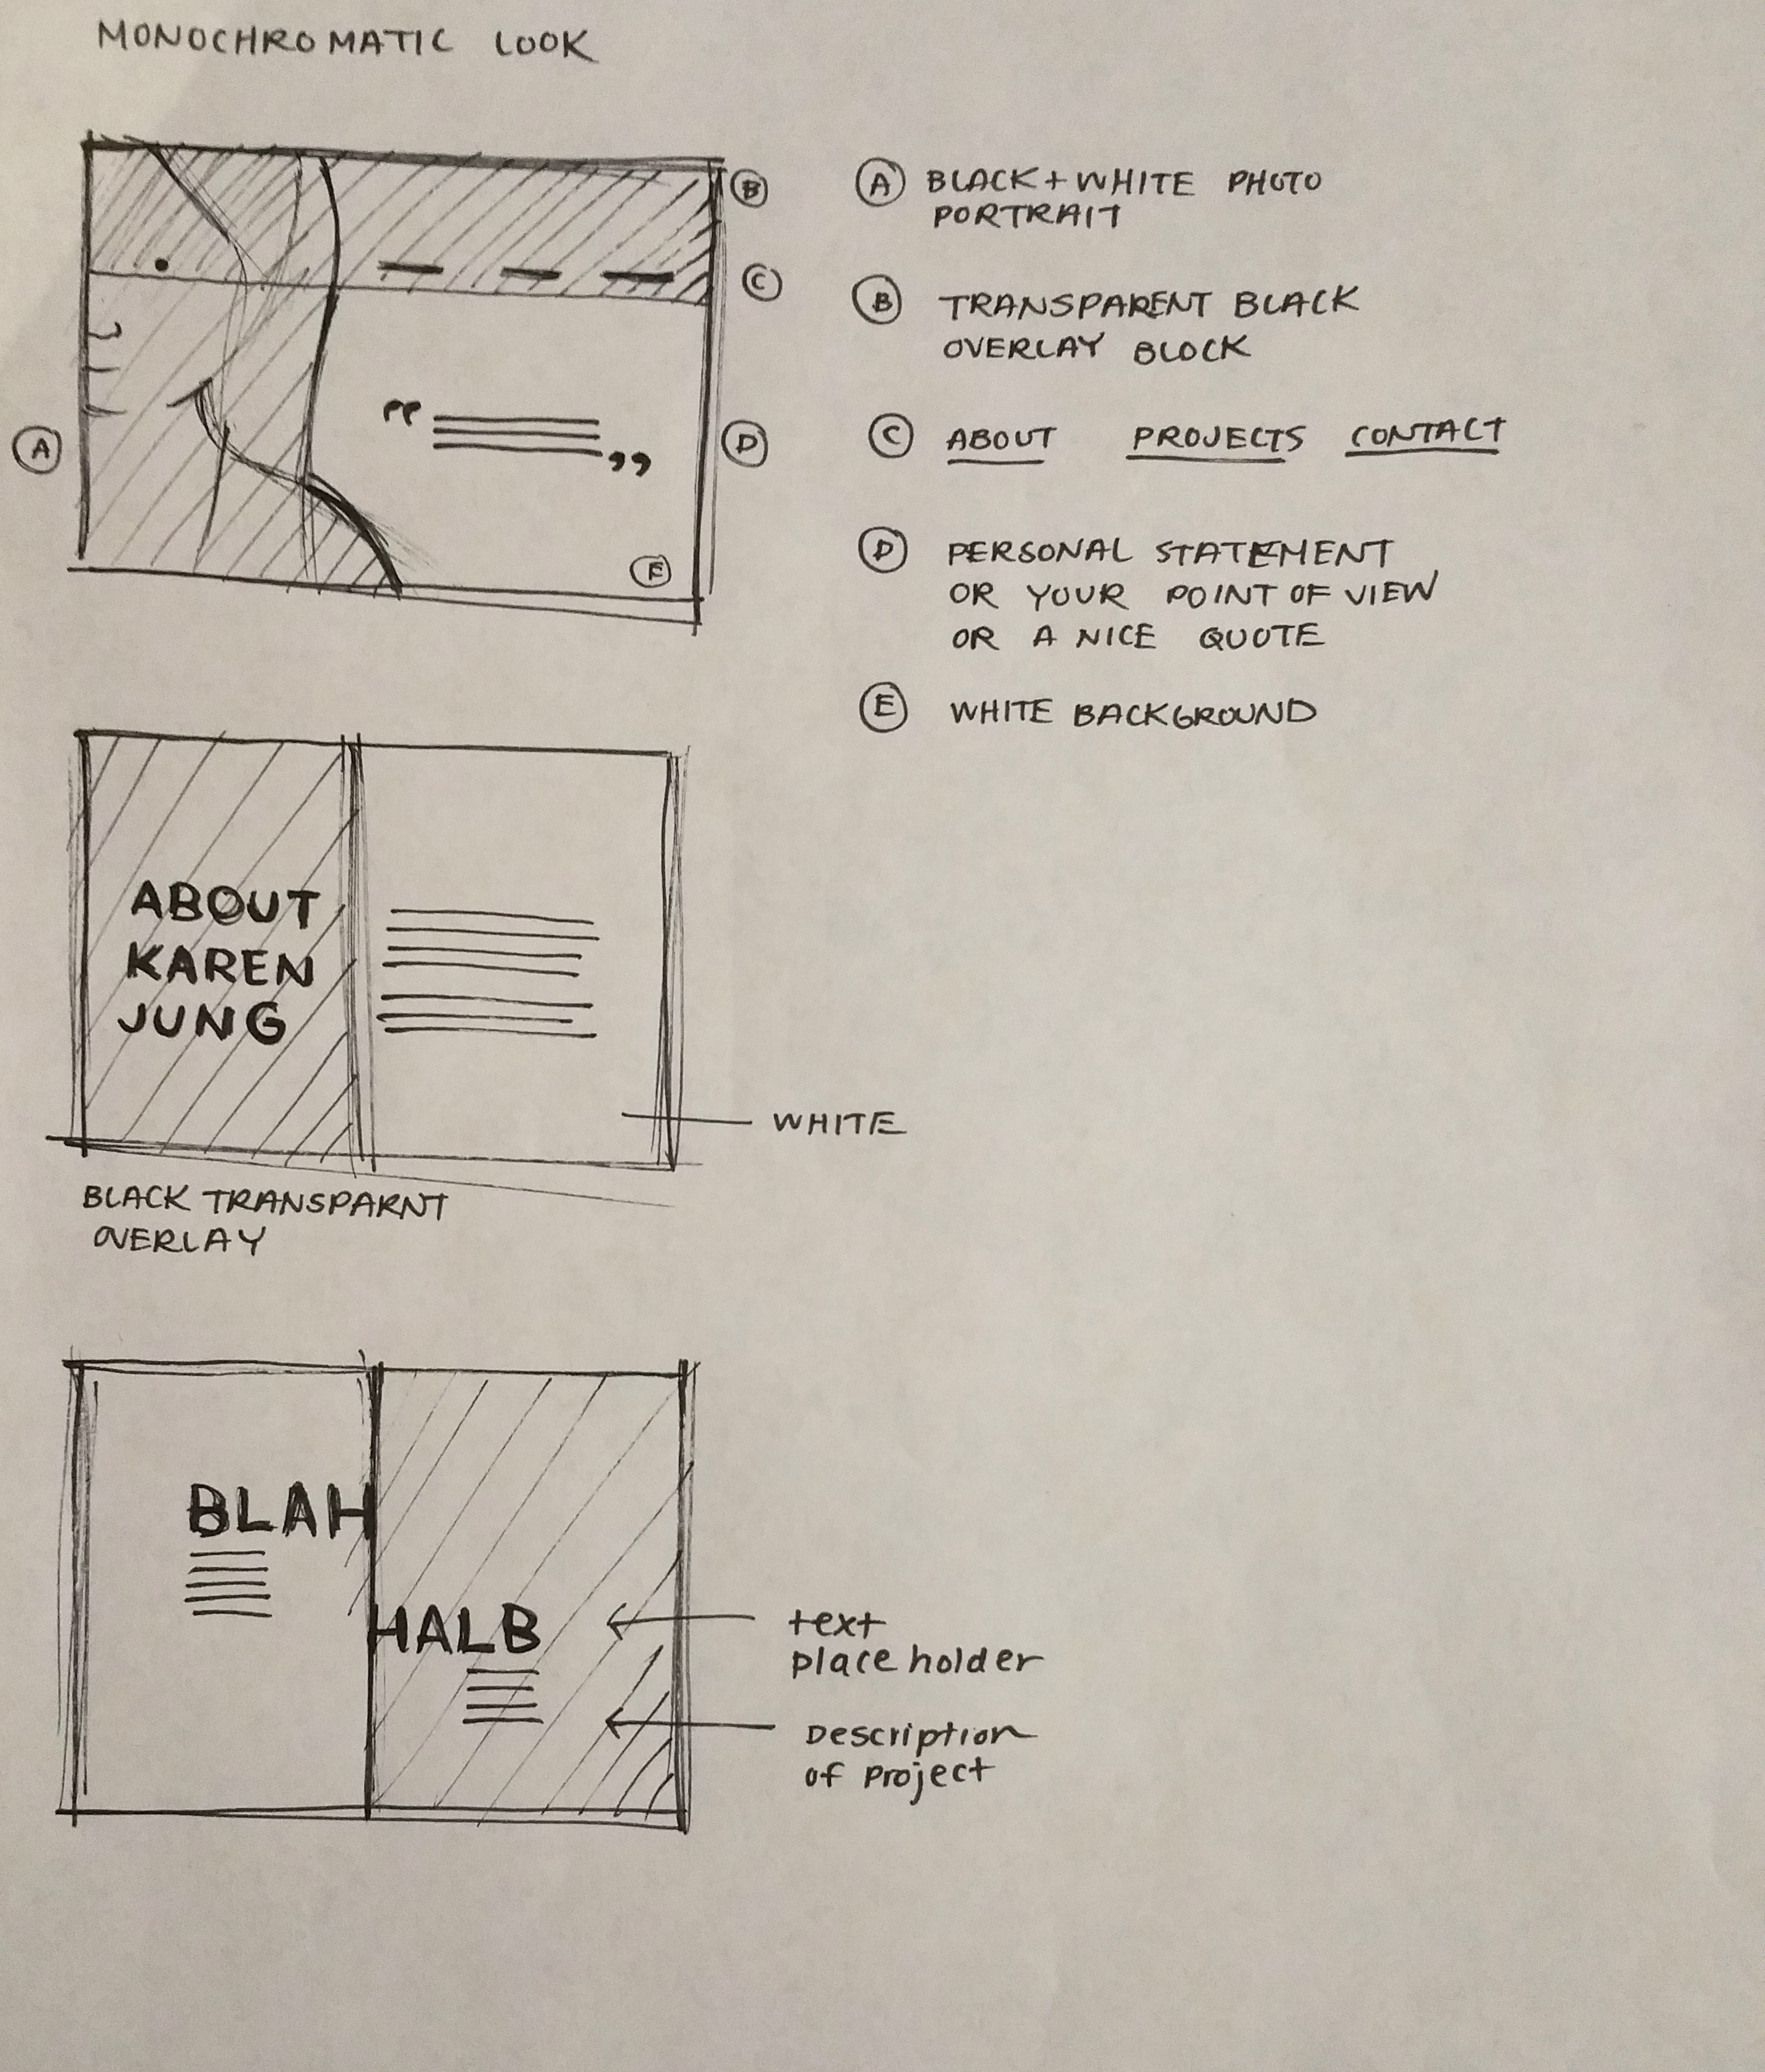 MONOCHROMATIC LOOK
B
C
A
D
E
A BLACK+WHITE PHOTO
PORTRAIT
B TRANSPARENT BLACK
OVERLAY BLOCK
C ABOUT PROJECTS CONTACT
D PERSONAL STATEMENT
OR YOUR POINT OF VIEW
OR A NICE QUOTE
E WHITE BACKGROUND
ABOUT
KAREN
JUNG
WHITE
BLACK TRANSPARNT
OVERLAY
BLAH
HALB
text
place holder
Description
of project